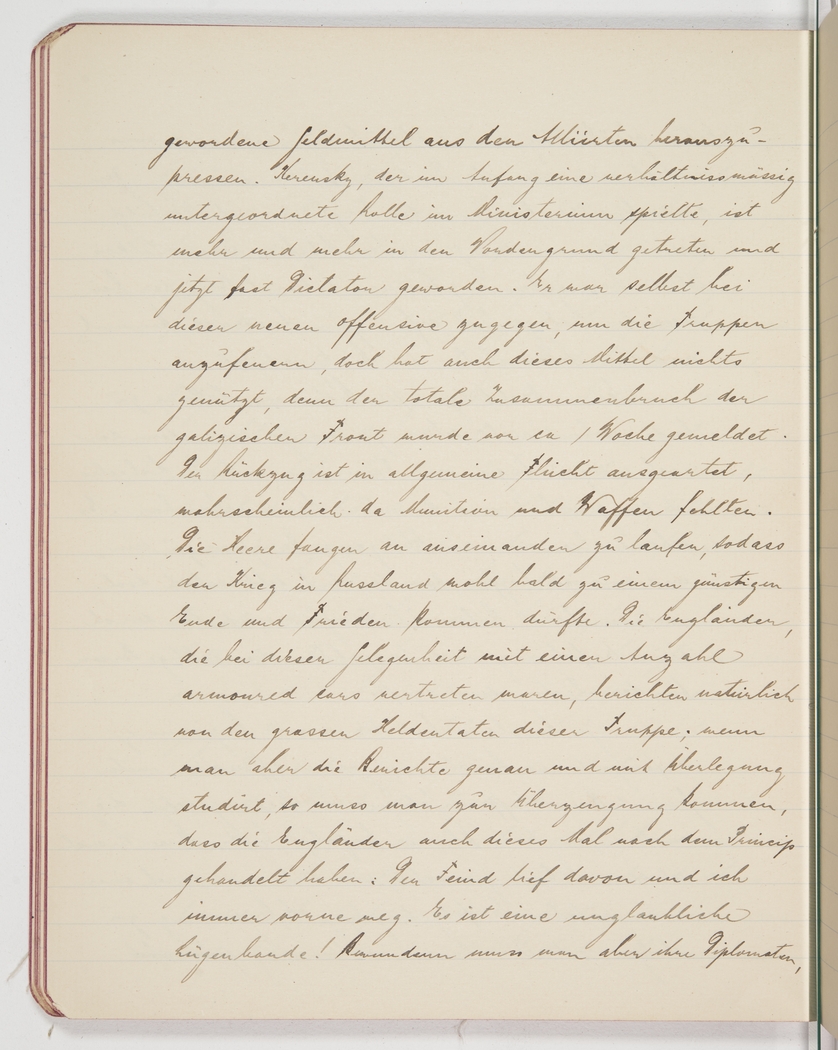 gewordene Geldmittel aus den Alliirten herauszu-
pressen. Kerensky, der im Anfang eine verhältnissmässig
untergeordnete Rolle im Ministerium spielte, ist
mehr und mehr in den Vordergrund getreten und
jetzt fast Dictator geworden. Er war selbst bei
dieser neuen Offensive zugegen, um die Truppen
anzufeuern, doch hat auch dieses Mittel nichts
genützt, denn der totale Zusammenbruch der
galizischen Front wurde vor ca 1 Woche gemeldet.
Der Rückzug ist in allgemeine Flucht ausgeartet,
wahrscheinlich da Munition und Waffen fehlten.
Die Heere fangen an auseinander zu laufen, sodass
der Krieg in Russland wohl bald zu einem günstigen
Ende und Frieden kommen dürfte. Die Engländer,
die bei dieser Gelegenheit mit einer Anzahl
armoured cars vertreten waren, berichten natürlich
von den grossen Heldentaten dieser Truppe; wenn
man aber die Berichte genau und mit Überlegung
studirt, so muss man zur Überzeugung kommen,
dass die Engländer auch dieses Mal nach dem Princip
gehandelt haben: Der Feind lief davon und ich
immer vorne weg. Es ist eine unglaubliche
Lügenbande! Bewundern muss man aber ihre Diplomaten,